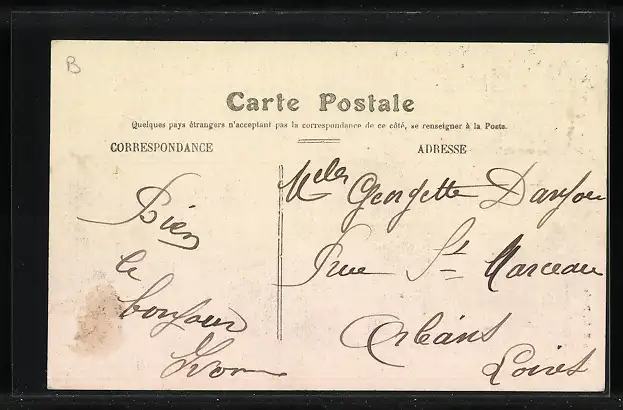 B
Carte Postale
Quelques pays étrangers n'acceptant pas la correspondance de ce côté, se renseigner à la Poste.
CORRESPONDANCE
ADRESSE
Bien
le
bonjour
Yvon
Georgette
rue St Marceau
Orléans
Loiret